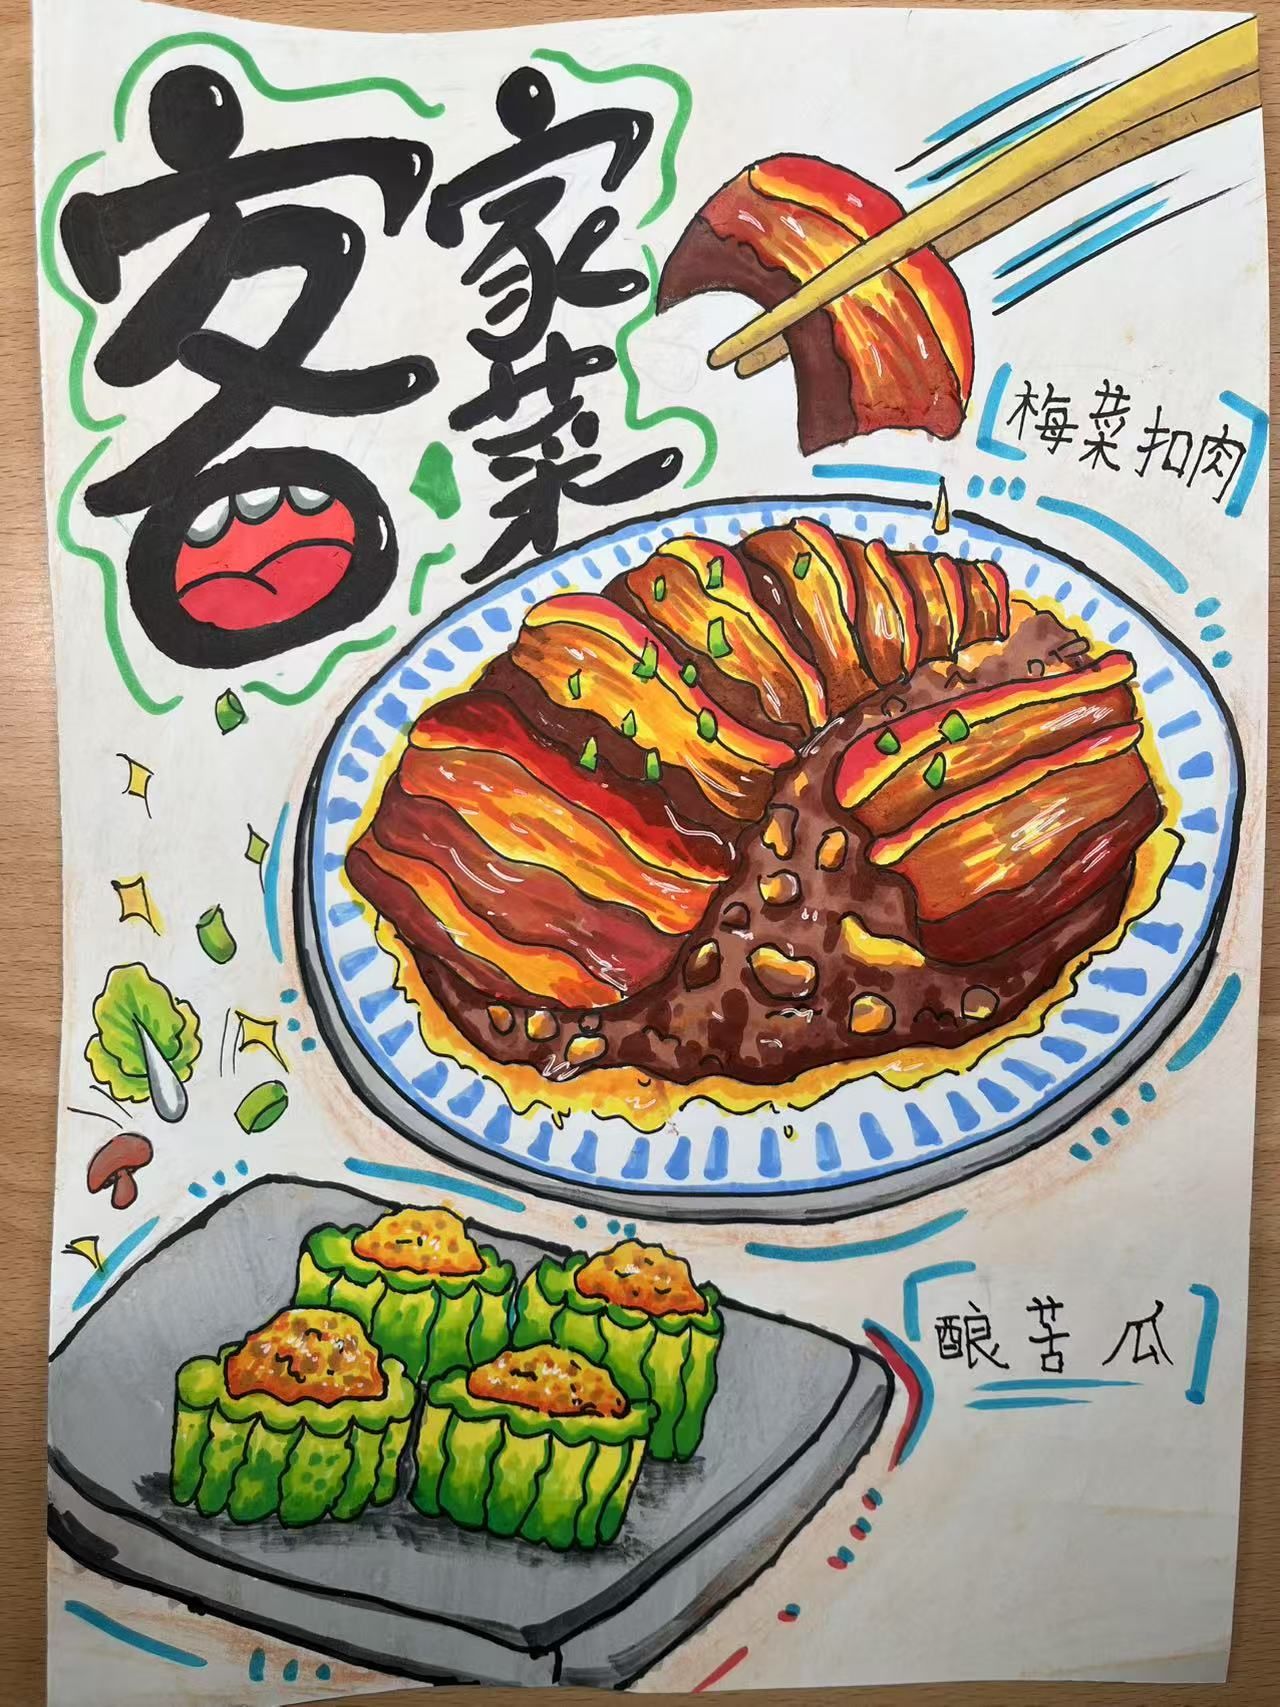 客家菜
梅菜扣肉
酿苦瓜